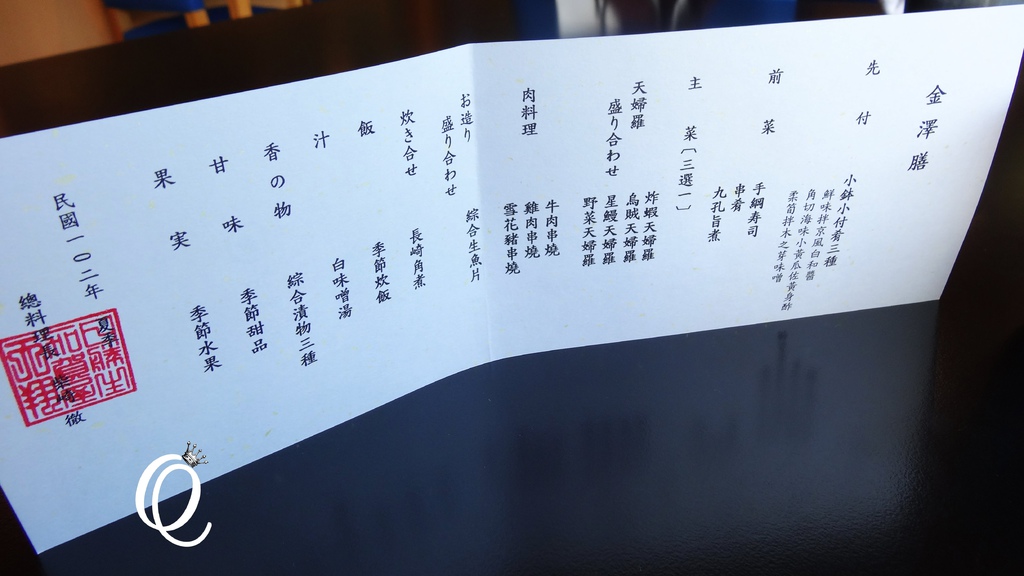 金澤膳
先付
小鉢小付肴三種
鮮味拌京風白和醬
角切海味小黃瓜佐黃身酢
柔筍拌木之芽味噌
前菜
手綱寿司
串肴
九孔旨煮
主菜〔三選一〕
天婦羅
盛り合わせ
炸蝦天婦羅
烏賊天婦羅
星鰻天婦羅
野菜天婦羅
肉料理
牛肉串燒
雞肉串燒
雪花豬串燒
お造り
盛り合わせ
綜合生魚片
炊き合せ
長崎角煮
飯
季節炊飯
汁
白味噌湯
香の物
綜合漬物三種
甘味
季節甜品
果実
季節水果
民國一〇二年 夏季
總料理長 徹